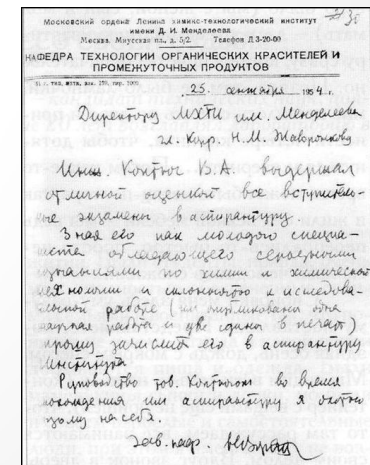 № 30
Московский ордена Ленина химико-технологический институт
имени Д. И. Менделеева
Москва, Миусская пл., д. 5/2 Телефон Д 3-20-00
КАФЕДРА ТЕХНОЛОГИИ ОРГАНИЧЕСКИХ КРАСИТЕЛЕЙ И
ПРОМЕЖУТОЧНЫХ ПРОДУКТОВ
25 сентября 1954 г.
Директору МХТИ им. Менделеева
чл. корр. Н. М. Жаворонкову
Инж. Коптюг В. А. выдержал
отличной оценкой все вступитель-
ные экзамены в аспирантуру.
Зная его как молодого специа-
листа обладающего серьезными
знаниями по химии и химической
технологии и склонностью к исследова-
тельской работе (им опубликована одна
научная работа и две сданы в печать)
прошу зачислить его в аспирантуру
Института.
Руководство тов. Коптюгом во время
прохождения им аспирантуры я охотно
возьму на себя.
Зав. каф.